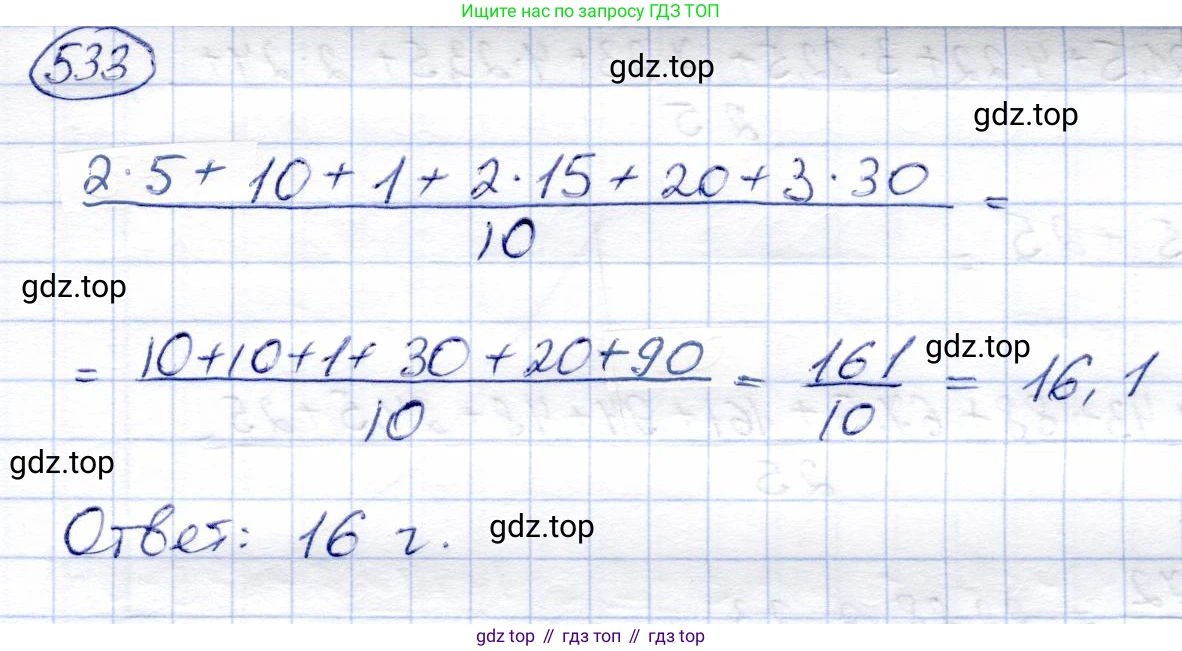 Ищите нас по запросу ГДЗ ТОП
533
gdz.top
gdz.top
2·5+10+1+2·15+20+3·30 =
10
gdz.top
= 10+10+1+30+20+90 = 161 = 16,1
10 10
gdz.top
gdz.top
Ответ: 16 г.
gdz.top
gdz top // гдз топ // гдз top